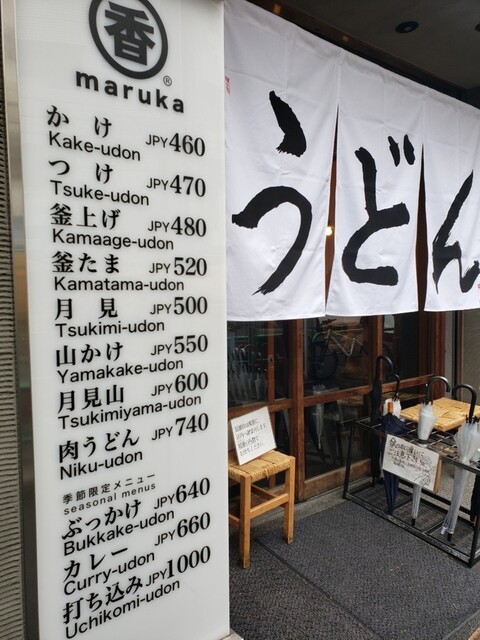 香
®
maruka
かけ JPY460
Kake-udon
つけ JPY470
Tsuke-udon
釜上げ JPY480
Kamaage-udon
釜たま JPY520
Kamatama-udon
月見 JPY500
Tsukimi-udon
山かけ JPY550
Yamakake-udon
月見山 JPY600
Tsukimiyama-udon
肉うどん JPY740
Niku-udon
季節限定メニュー
seasonal menus
ぶっかけ JPY640
Bukkake-udon
カレー JPY660
Curry-udon
打ち込み JPY1000
Uchikomi-udon
うどん